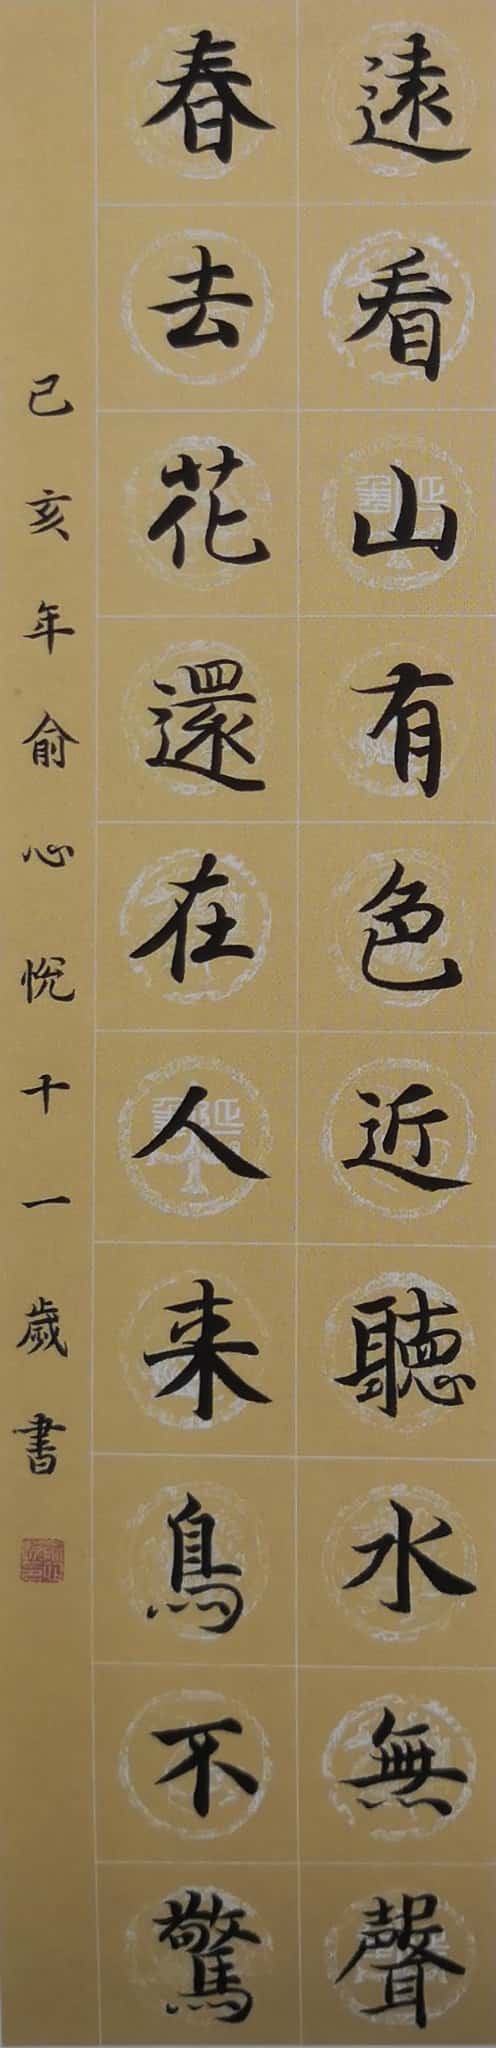 遠看山有色近聽水無聲
春去花還在人来鳥不驚
己亥年俞心悅十一歲書